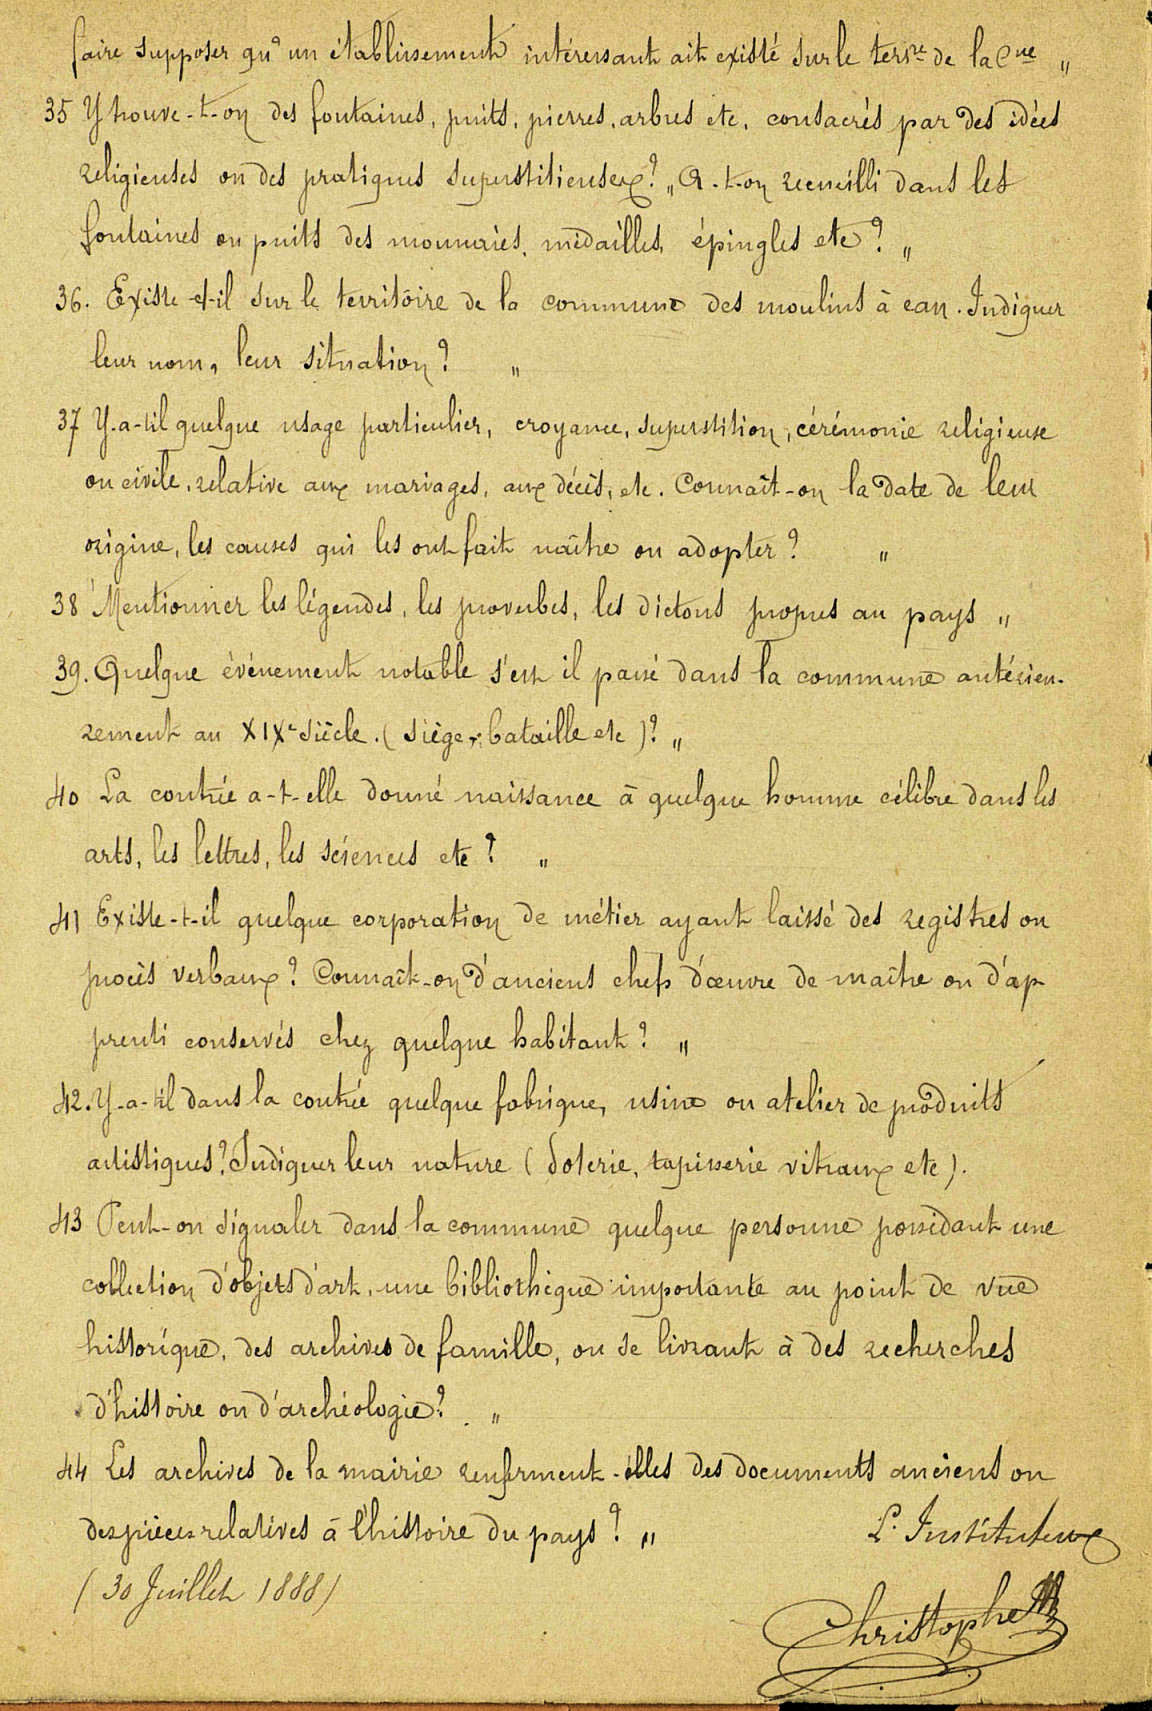 faire supposer qu'un établissement intéressant ait existé sur le terre de la Cne "
35 Y trouve-t-on des fontaines, puits, pierres, arbres etc, consacrés par des idées
religieuses ou des pratiques superstitieuses? " A-t-on recueilli dans les
fontaines ou puits des monnaies, médailles, épingles etc? "
36. Existe-t-il sur le territoire de la commune des moulins à eau. Indiquer
leur nom, leur situation? "
37 Y-a-t-il quelque usage particulier, croyance, superstition, cérémonie religieuse
ou civile, relative aux mariages, aux décès, etc. Connaît-on la date de leur
origine, les causes qui les ont fait naître ou adopter? "
38 Mentionner les légendes, les proverbes, les dictons propres au pays "
39. Quelque événement notable s'est il passé dans la commune antérieu-
rement au XIXe siècle. (siège, bataille etc)? "
40 La contrée a-t-elle donné naissance à quelque homme célèbre dans les
arts, les lettres, les sciences etc? "
41 Existe-t-il quelque corporation de métier ayant laissé des registres ou
procès verbaux? Connaît-on d'anciens chefs d'œuvre de maître ou d'ap
prenti conservés chez quelque habitant? "
42. Y-a-t-il dans la contrée quelque fabrique, usine ou atelier de produits
artistiques? Indiquer leur nature (Poterie, tapisserie vitraux etc).
43 Peut-on signaler dans la commune quelque personne possédant une
collection d'objets d'art, une bibliothèque importante au point de vue
historique, des archives de famille, ou se livrant à des recherches
d'histoire ou d'archéologie? "
44 Les archives de la mairie renferment-elles des documents anciens ou
des pièces relatives à l'histoire du pays? "
L'Instituteur
(30 Juillet 1888)
Christophe